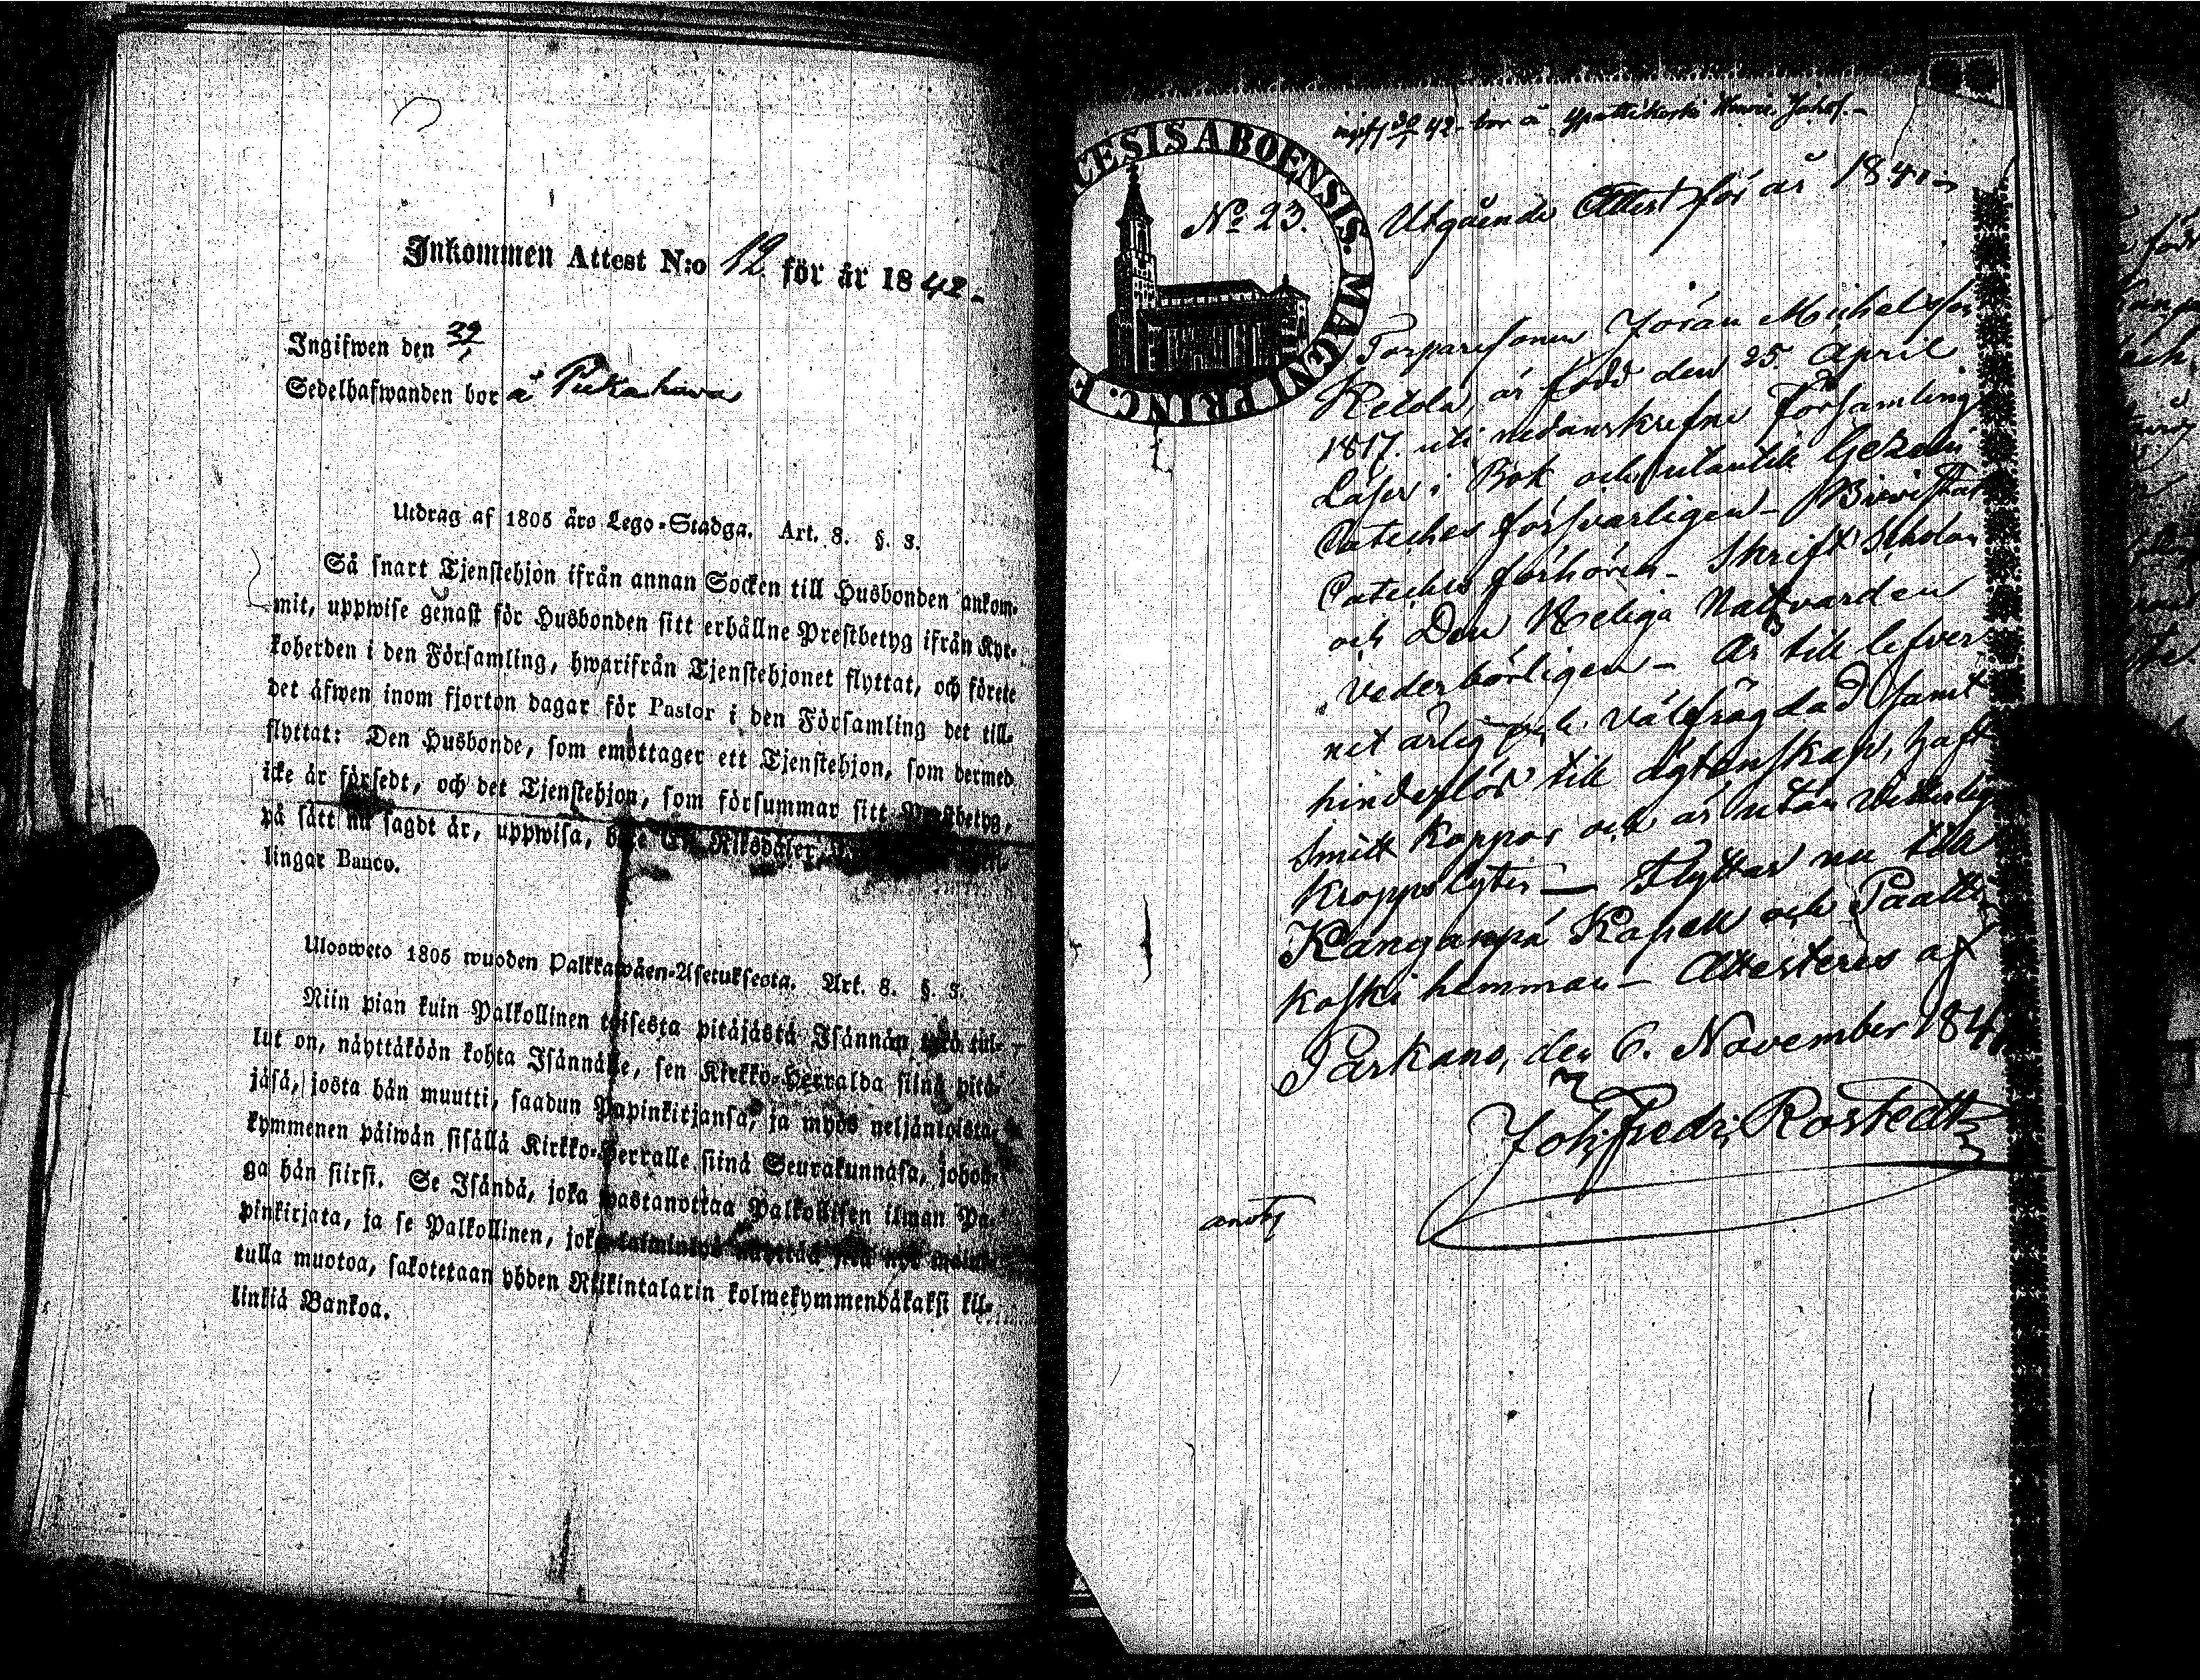 Inkommen Attest N:o 12. för år 1842-
Ingifwen den 29/1
Sedelhafwanden bor å
Utdrag af 1805 åro Lego-Stadga. Art. 8. §. 3.
Så snart Tjenstehjon ifrån annan Socken till Husbonden ankom-
mit, uppwise genast för Husbonden sitt erhållne Prestbetyg ifrån Kyr-
koherden i den Församling, hwarifrån Tjenstehjonet flyttat, och förete
det äfwen inom fjorton dagar för Pastor i den Församling det till-
flyttat: Den Husbonde, som emottager ett Tjenstehjon, som dermed
icke är försedt, och det Tjenstehjon, som försummar sitt Prestbetyg,
på sätt nu sagdt är, uppwisa, Riksdaler
lingar Banco.
Ulosweto 1805 wuoden Palkkawäen-Asetuksesta. Art. 8. §. 3.
Niin pian kuin Palkollinen toisesta pitäjästä Isännän tykö tul-
lut on, näyttäköön kohta Isännälle, sen Kirkko-Herralda siinä pitä-
jäsä, josta hän muutti, saadun Papinkirjansa, ja myös neljäntoista-
kymmenen päiwän sisällä Kirkko-Herralle siinä Seurakunnasa, johon-
ga hän siirsi. Se Isändä, joka wastanottaa Palkollisen ilman Pa-
pinkirjata, ja se Palkollinen, joka
tulla muotoa, sakotetaan yhden Riikintalarin kolmekymmendäkaksi kil-
linkiä Bankoa.
CESIS ABOENSIS. MAGNI PRINC. F
ingif 30/1 42- bor å
No 23. Utgående Attest för år 1841-
Torparesonen Jöran Michelsson
Ketola, är född den 25. April
1817. uti nedanskrefne Församling
Läser i Bok och utantill
Cateches försvarligen- Bivistat
Cateches förhören- Skrift Skolan
och Den Heliga Nattvarden
Vederbörligen- Är till lefver-
net ärlig och välfrägdad samt
hinderslös till ägtenskap, haft
Smitt koppor och är utan
kroppslyten- Flyttar nu till
Kanganpä Kapell och Paatti-
koski hemman- Attesteras af
Parkano, den 6. November 1841
Joh: Fredr: Rostedt